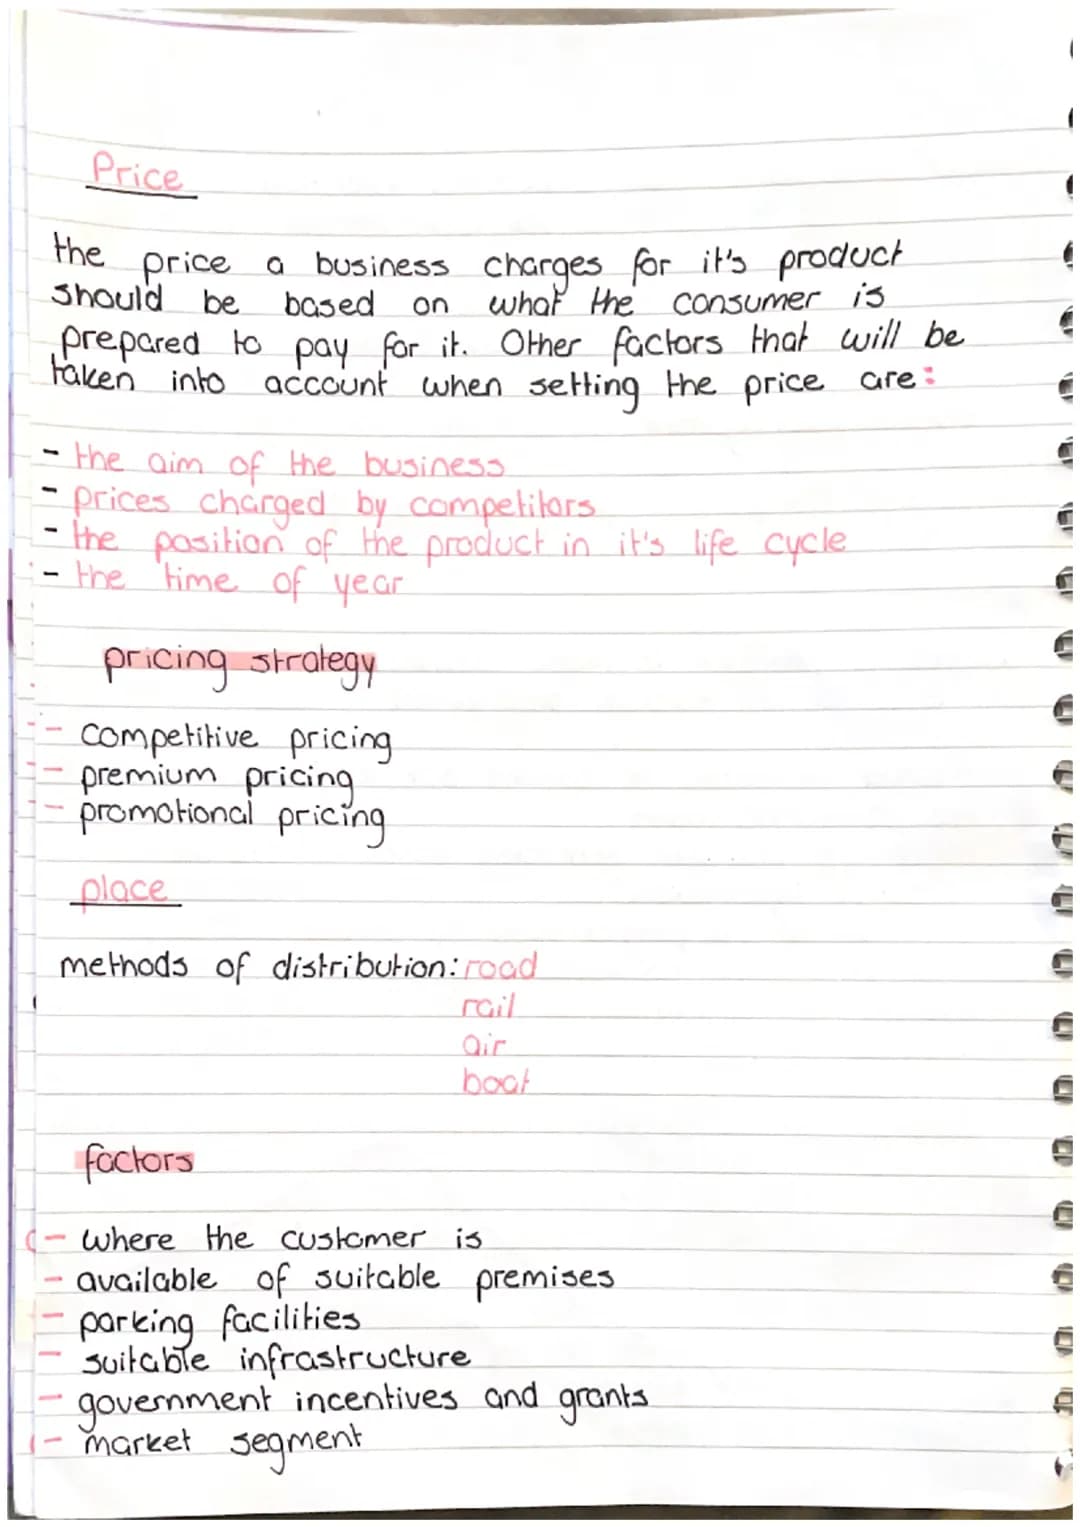 Price
the price a business charges for it's product
should be based on what the consumer is
prepared to pay for it. Other factors that will be
taken into account when setting the price are:
- the aim of the business
- prices charged by competitors
- the position of the product in it's life cycle
- the time of year
pricing strategy
- competitive pricing
- premium pricing
- promotional pricing
place
methods of distribution: road
rail
air
boat
factors
- where the customer is
- available of suitable premises
- parking facilities
- suitable infrastructure
- government incentives and grants
- market segment